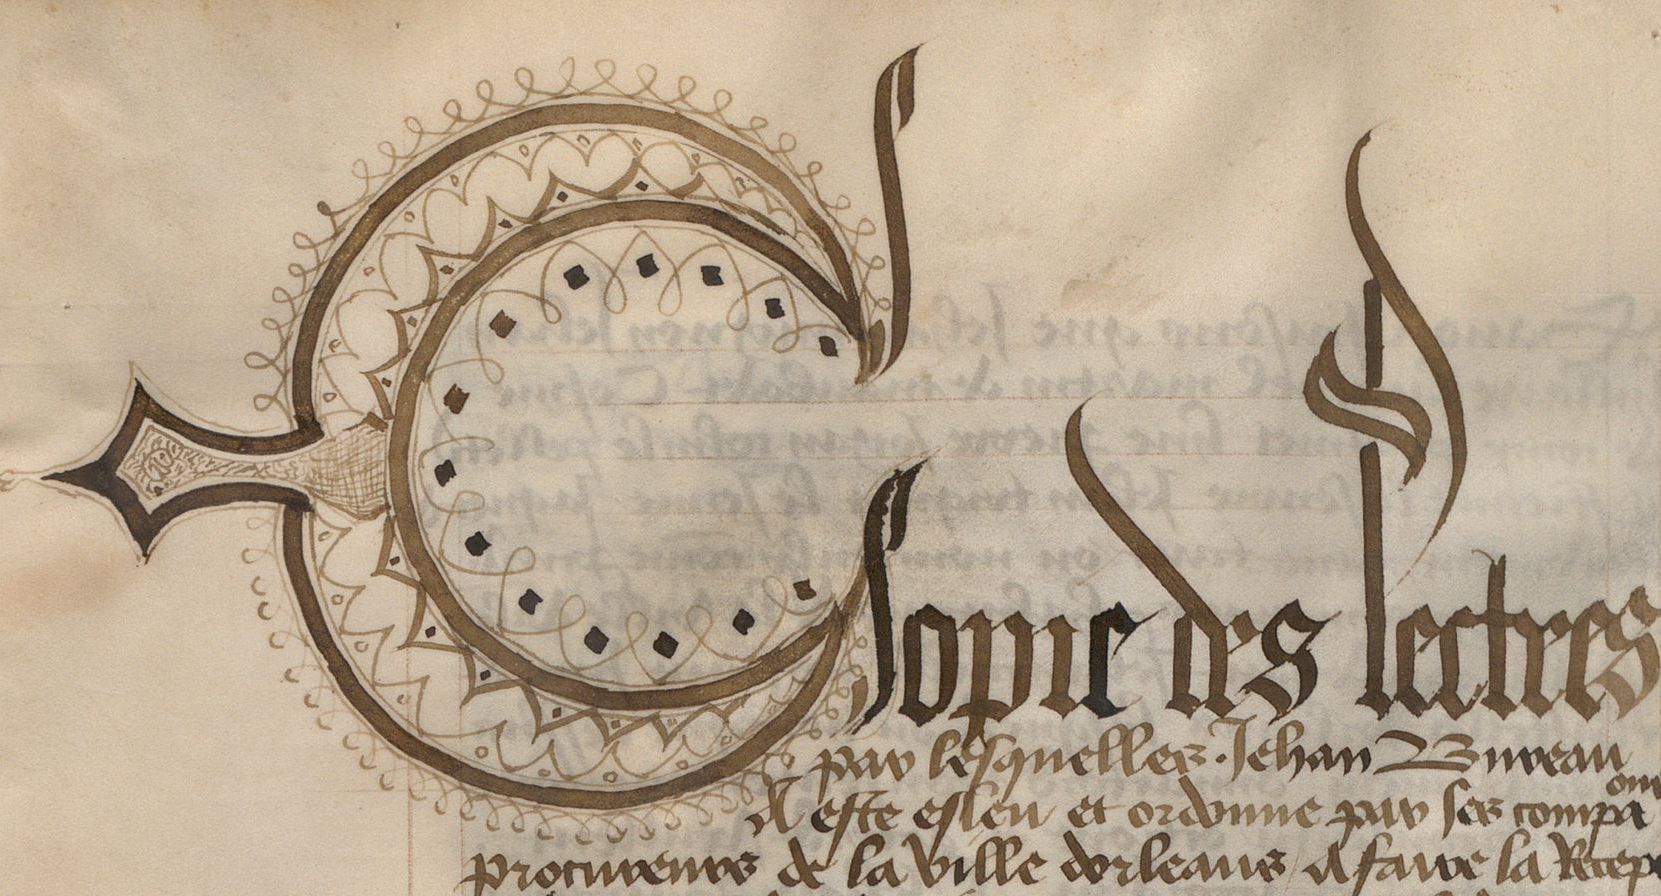 Copie des lectres
par lesquelles Jehan Bureau
A este esleu et ordonne par ses compa
procureurs de la ville dorleans A faire la Recep